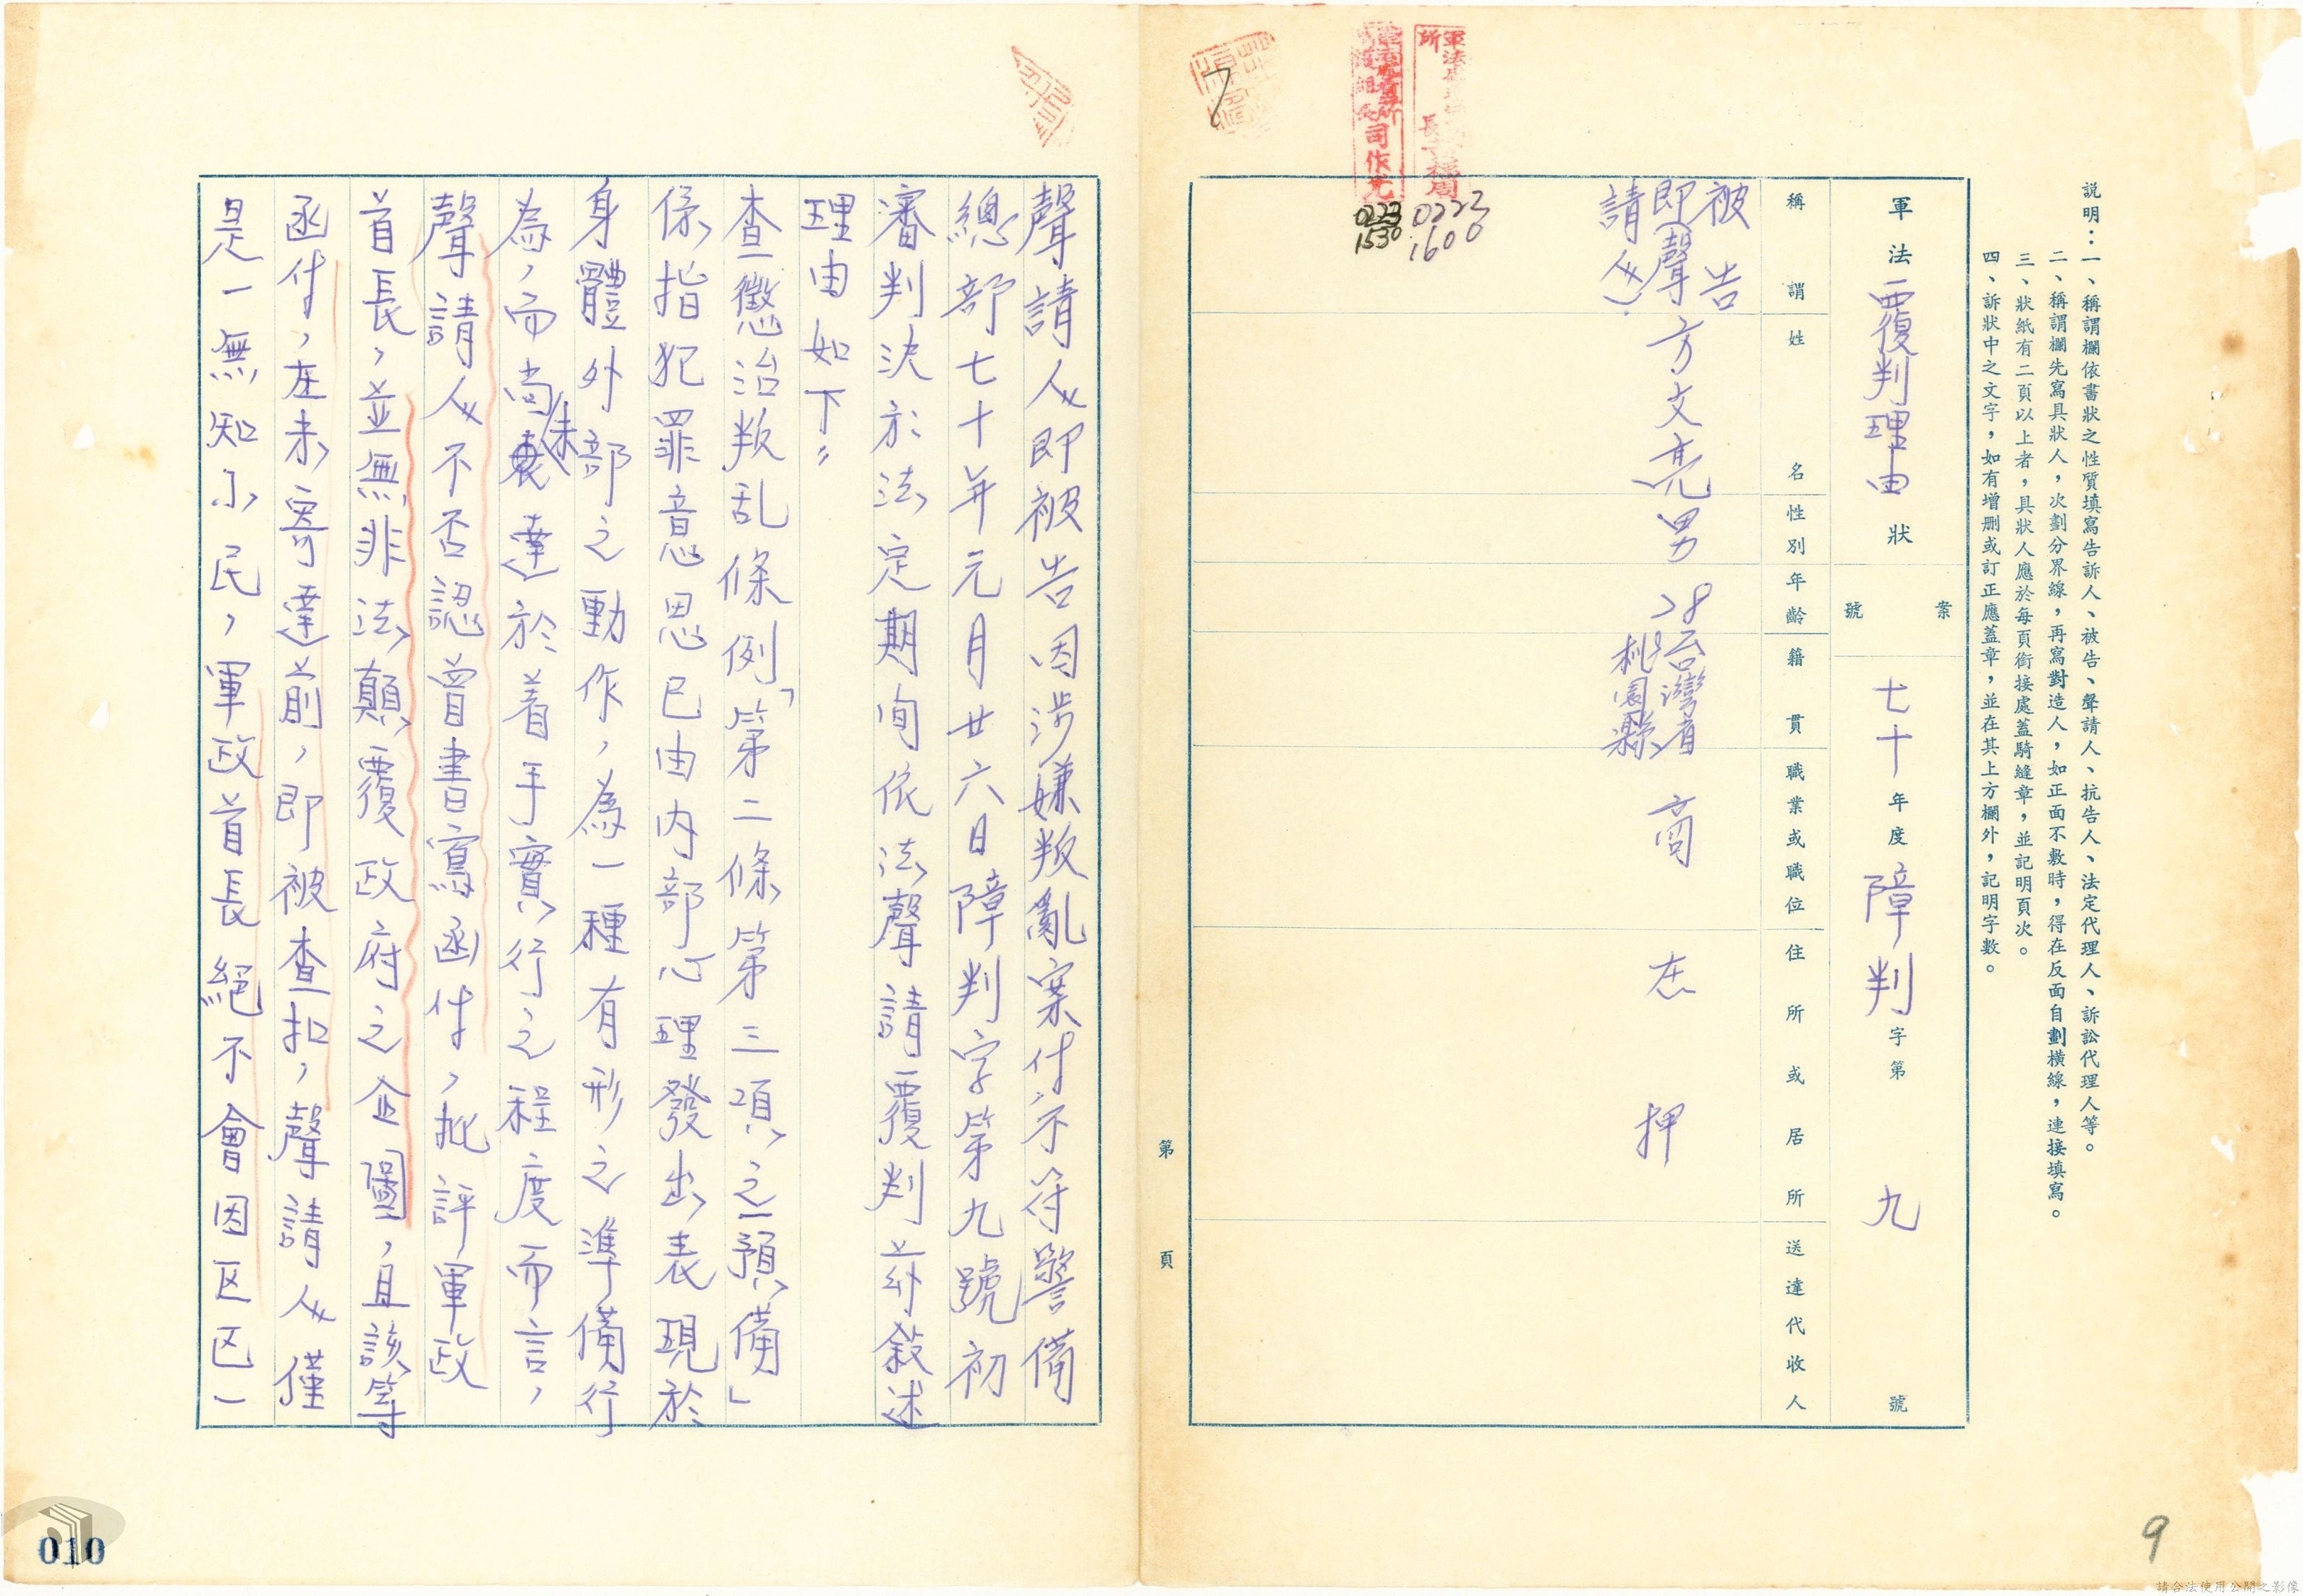 說明：一、稱謂欄依書狀之性質填寫告訴人、被告、聲請人、抗告人、法定代理人、訴訟代理人等。
二、稱謂欄先寫具狀人，次劃分界線，再寫對造人，如正面不敷時，得在反面自劃橫線，連接填寫。
三、狀紙有二頁以上者，具狀人應於每頁銜接處蓋騎縫章，並記明頁次。
四、訴狀中之文字，如有增刪或訂正應蓋章，並在其上方欄外，記明字數。
軍法覆判理由狀
案號
七十年度障判字第九號
稱謂
姓名
性別
年齡
籍貫
職業或職位
住所或居所
送達代收人
被告
即(聲
請人)
方文亮
男
28
台灣省
桃園縣
商
在押
司作元
0223
1600
0223
1530
7
第 頁
聲請人即被告因涉嫌叛亂案件不符警備
總部七十年元月廿六日障判字第九號初
審判決於法定期間依法聲請覆判並敘述
理由如下：
查「懲治叛乱條例」第二條第三項之「預備」
係指犯罪意思已由內部心理發出表現於
身體外部之動作，為一種有形之準備行
為，而尚未達於着手實行之程度而言，
聲請人不否認曾書寫函件，批評軍政
首長，並無非法顛覆政府之企圖，且該等
函件，在未寄達前，即被查扣，聲請人僅
是一無知小民，軍政首長絕不會因区区一
010
9
請合法使用公開之影像